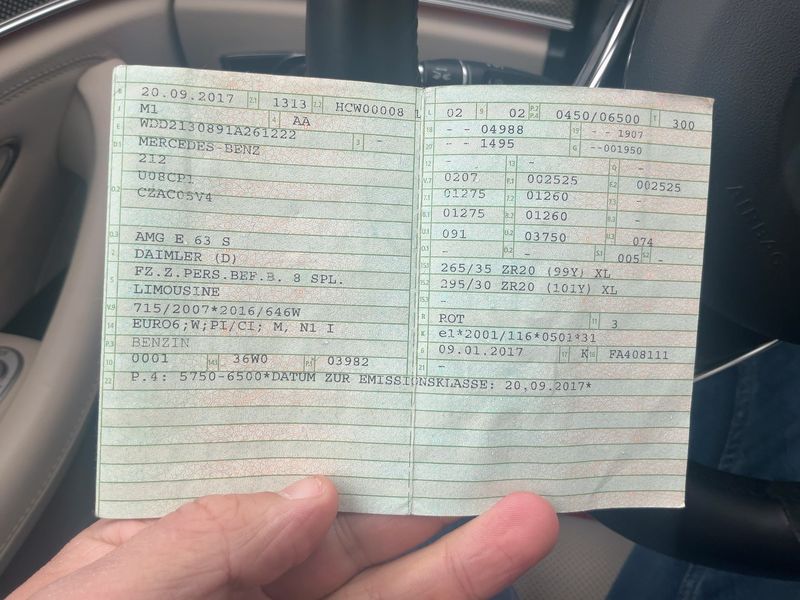 B 20.09.2017 2.1 1313 2.2 HCW00008
J M1 4 AA
E WDD2130891A261222 3 -
D.1 MERCEDES-BENZ
212
D.2 U08CP1
CZAC05V4
D.3 AMG E 63 S
2 DAIMLER (D)
5 FZ.Z.PERS.BEF.B. 8 SPL.
LIMOUSINE
V.9 715/2007*2016/646W
14 EURO6;W;PI/CI; M, N1 I
P.3 BENZIN
10 0001 14.1 36W0 P.1 03982
22 P.4: 5750-6500*DATUM ZUR EMISSIONSKLASSE: 20.09.2017*
L 02 9 02 P.2 P.4 0450/06500 T 300
18 - - 04988 19 - - 1907
20 - - 1495 G --001950
12 - 13 - Q -
V.7 0207 F.1 002525 F.2 002525
7.1 01275 7.2 01260 7.3 -
8.1 01275 8.2 01260 8.3 -
U.1 091 U.2 03750 U.3 074
O.1 - O.2 - S.1 005 S.2 -
15.1 265/35 ZR20 (99Y) XL
15.2 295/30 ZR20 (101Y) XL
15.3 -
R ROT 11 3
K e1*2001/116*0501*31
6 09.01.2017 17 K 16 FA408111
21 -
AIRBAG